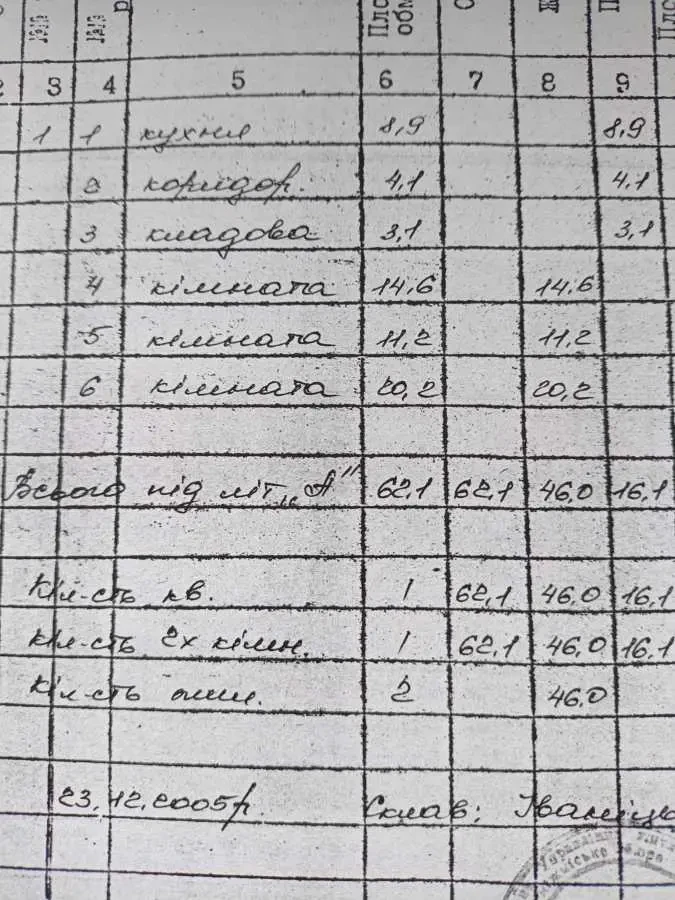 Пло
обм
2 3 4 5 6 7 8 9
1 1 кухня 8,9 8,9
2 коридор. 4,1 4,1
3 кладова 3,1 3,1
4 кімната 14,6 14,6
5 кімната 11,2 11,2
6 кімната 20,2 20,2
Всього під літ „А" 62,1 62,1 46,0 16,1
Кіл-сть кв. 1 62,1 46,0 16,1
Кіл-сть 2х кімн. 1 62,1 46,0 16,1
Кіл-сть 2 46,0
23.12.2005р. Склав: